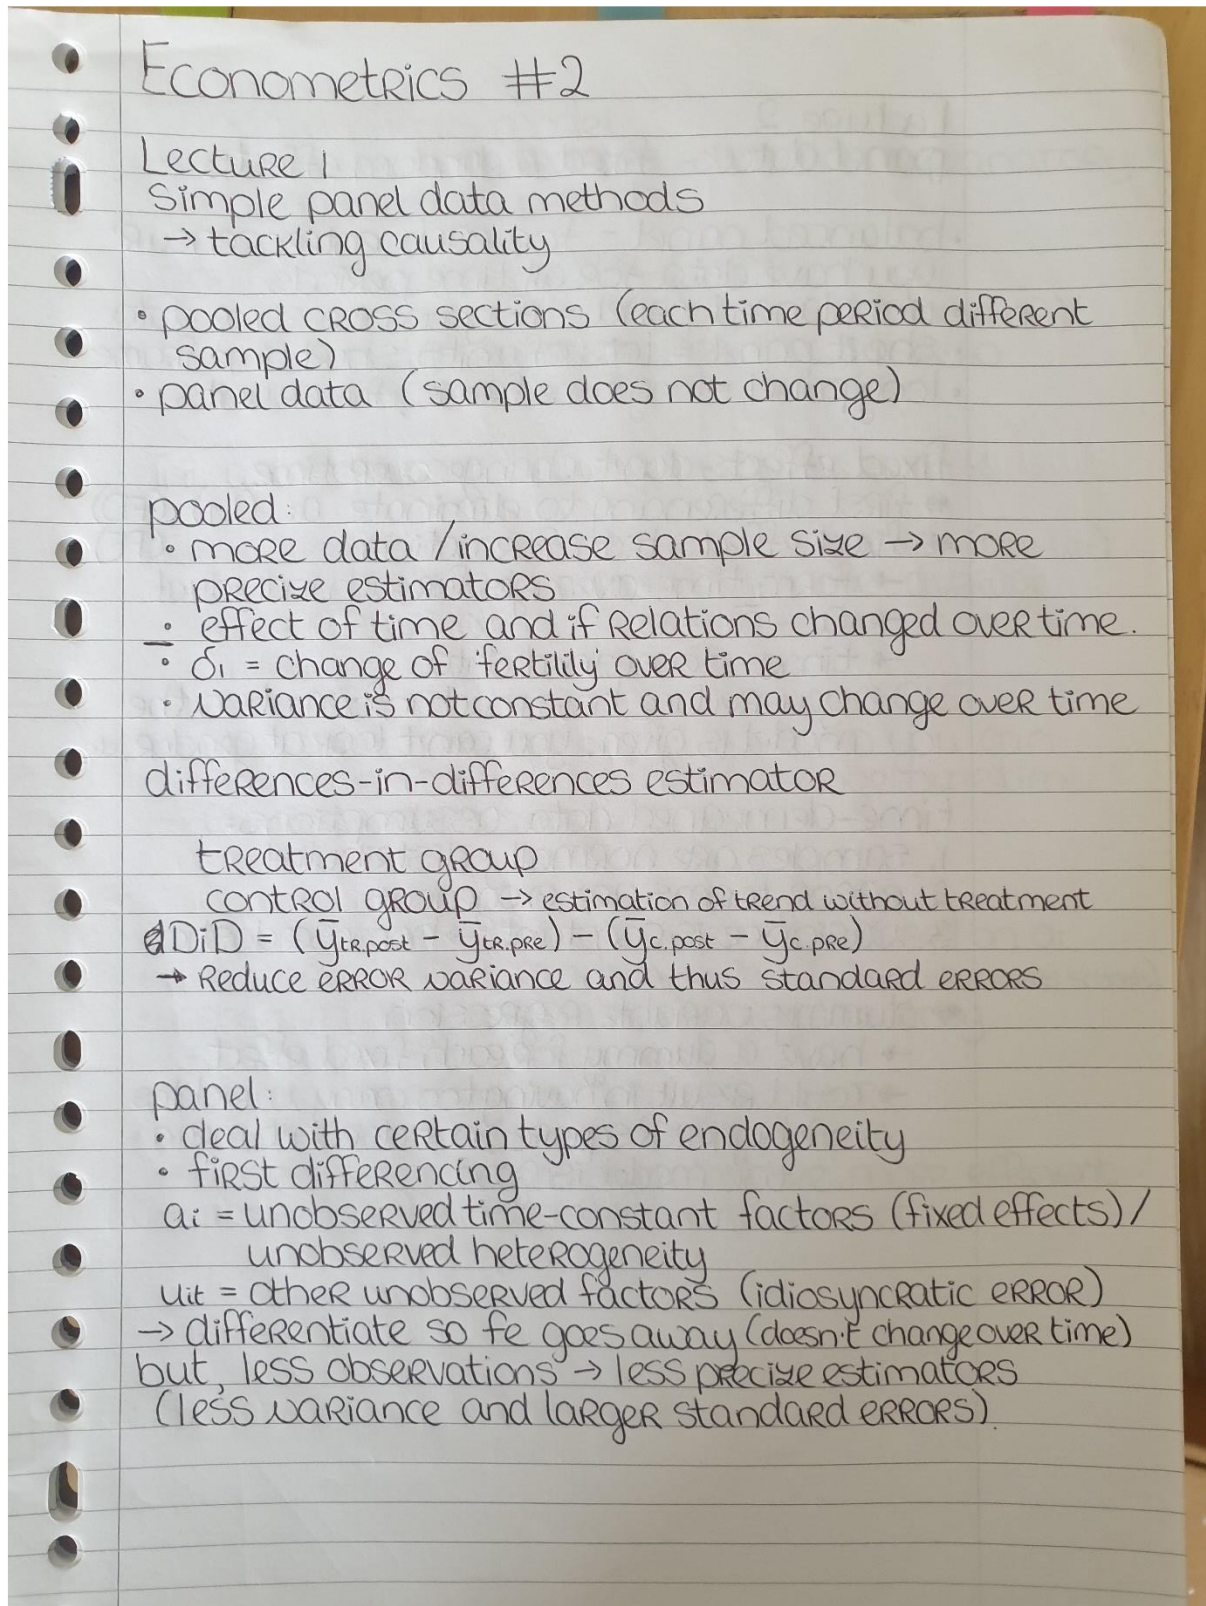 Econometrics #2
Lecture 1
Simple panel data methods
→ tackling causality
• pooled cross sections (each time period different
sample)
• panel data (sample does not change)
pooled:
• more data / increase sample size → more
precize estimators
• effect of time and if relations changed over time.
• δ₁ = change of 'fertilily' over time
• variance is not constant and may change over time
differences-in-differences estimator
treatment group
control group → estimation of trend without treatment
DiD = (ȳtr.post - ȳtr.pre) - (ȳc.post - ȳc.pre)
→ Reduce error variance and thus standard errors
panel:
• deal with certain types of endogeneity
• first differencing
ai = unobserved time-constant factors (fixed effects) /
unobserved heterogeneity
uit = other unobserved factors (idiosyncratic error)
→ differentiate so fe goes away (doesn't change over time)
but, less observations → less precize estimators
(less variance and larger standard errors).